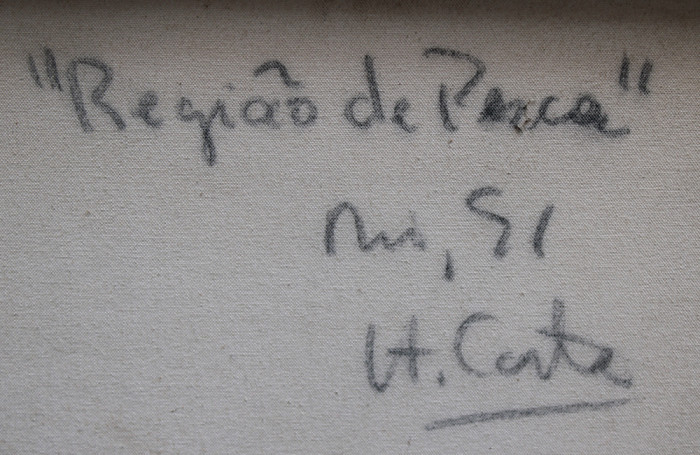 "Região de Pesca"
Rio, 91
H. Costa